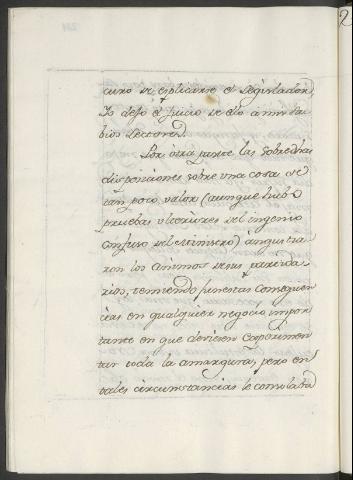 curo se esplicarse el Legislador,
Yo dejo el juicio se dio a mis sa-
bios Lectores.
Por otra parte las sobredhas
disposiciones sobre una cosa de
tan poco valor (aunque hubo
pruebas ulteriores del ingenio
confuso del Ministro) angustia-
ron los animos de sus partida-
rios, temiendo funestas consequen-
cias en qualquier negocio impor-
tante en que deviesen experimen-
tar toda la amargura; pero en
tales circunstancias le consolaba
2